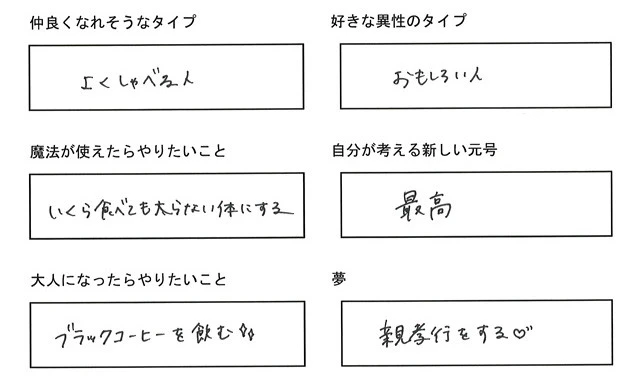 仲良くなれそうなタイプ
よくしゃべる人
好きな異性のタイプ
おもしろい人
魔法が使えたらやりたいこと
いくら食べても太らない体にする
自分が考える新しい元号
最高
大人になったらやりたいこと
ブラックコーヒーを飲む
夢
親孝行をする♡